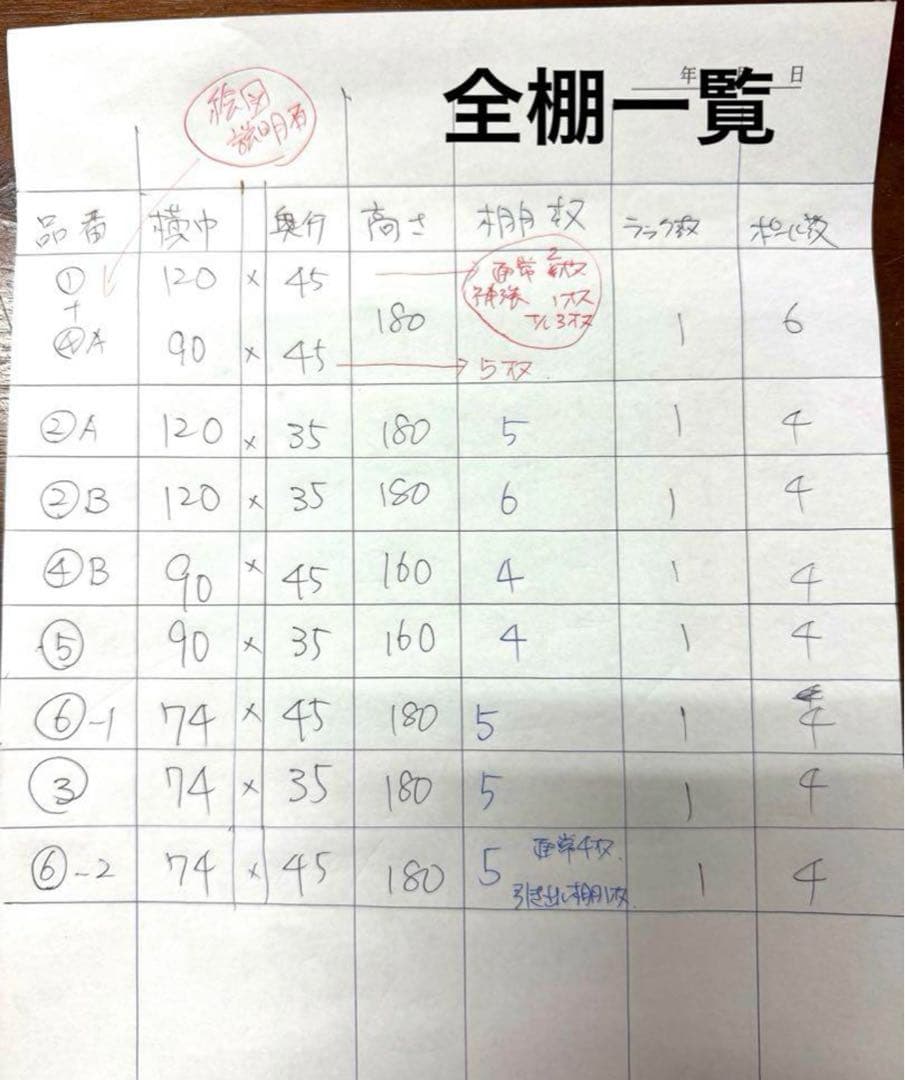 年 月 日
全棚一覧
絵図
説明有
品番 横巾 奥行 高さ 棚枚 ラック数 ポール数
① 120 × 45 → 通常 2枚
補強 1枚
計3枚
+ 180 1 6
④A 90 × 45 → 5枚
②A 120 × 35 180 5 1 4
②B 120 × 35 180 6 1 4
④B 90 × 45 160 4 1 4
⑤ 90 × 35 160 4 1 4
⑥-1 74 × 45 180 5 1 4
③ 74 × 35 180 5 1 4
⑥-2 74 × 45 180 5 通常4枚 1 4
引き出し棚1枚